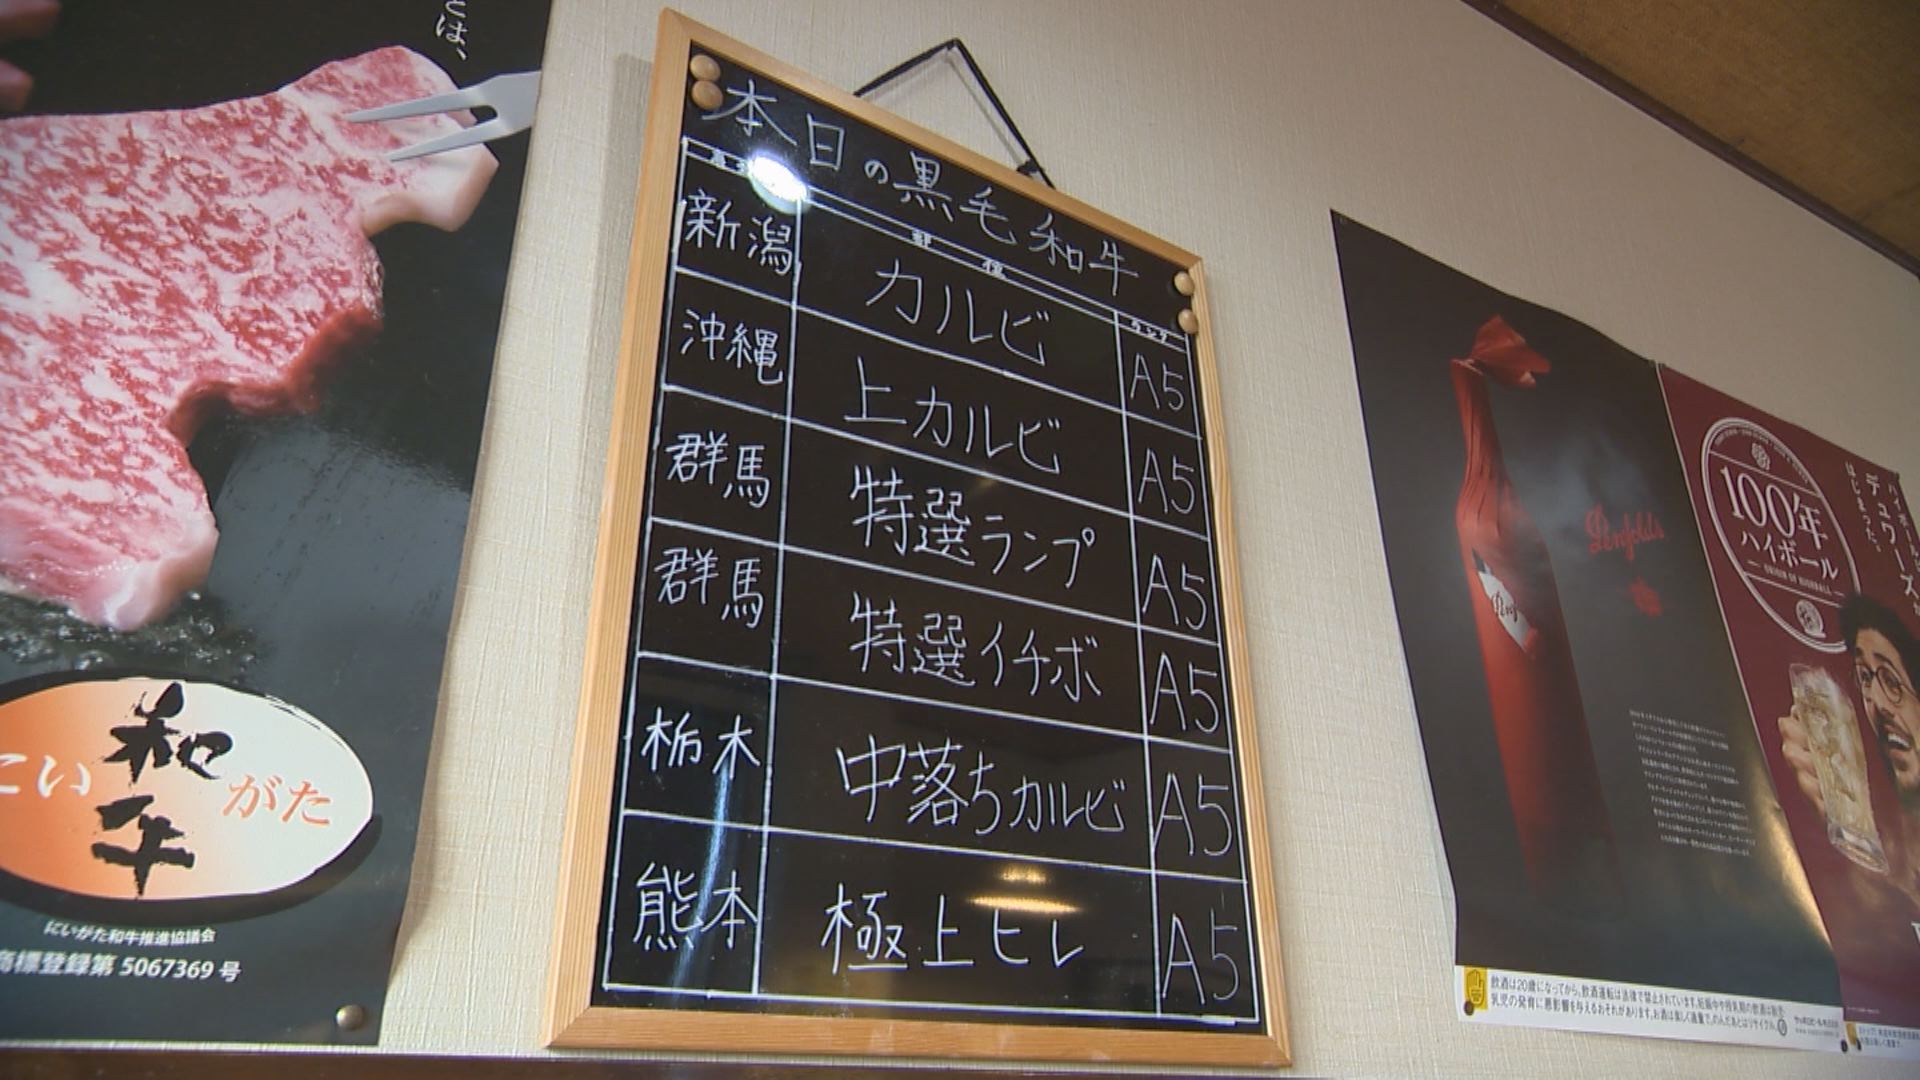 とは、
にい
和牛
がた
にいがた和牛推進協議会
商標登録第 5067369 号
本日の黒毛和牛
部位 ランク
新潟 カルビ A5
沖縄 上カルビ A5
群馬 特選ランプ A5
群馬 特選イチボ A5
栃木 中落ちカルビ A5
熊本 極上ヒレ A5
Penfolds
100年
ハイボール
ORIGIN OF HIGHBALL
デュワーズ
はじまった。
飲酒は20歳になってから。飲酒運転は法律で禁止されています。妊娠中や授乳期の飲酒は胎児・
乳児の発育に悪影響を与えるおそれがあります。お酒は楽しく適量で。のんだあとはリサイクル。
サッポロビール株式会社